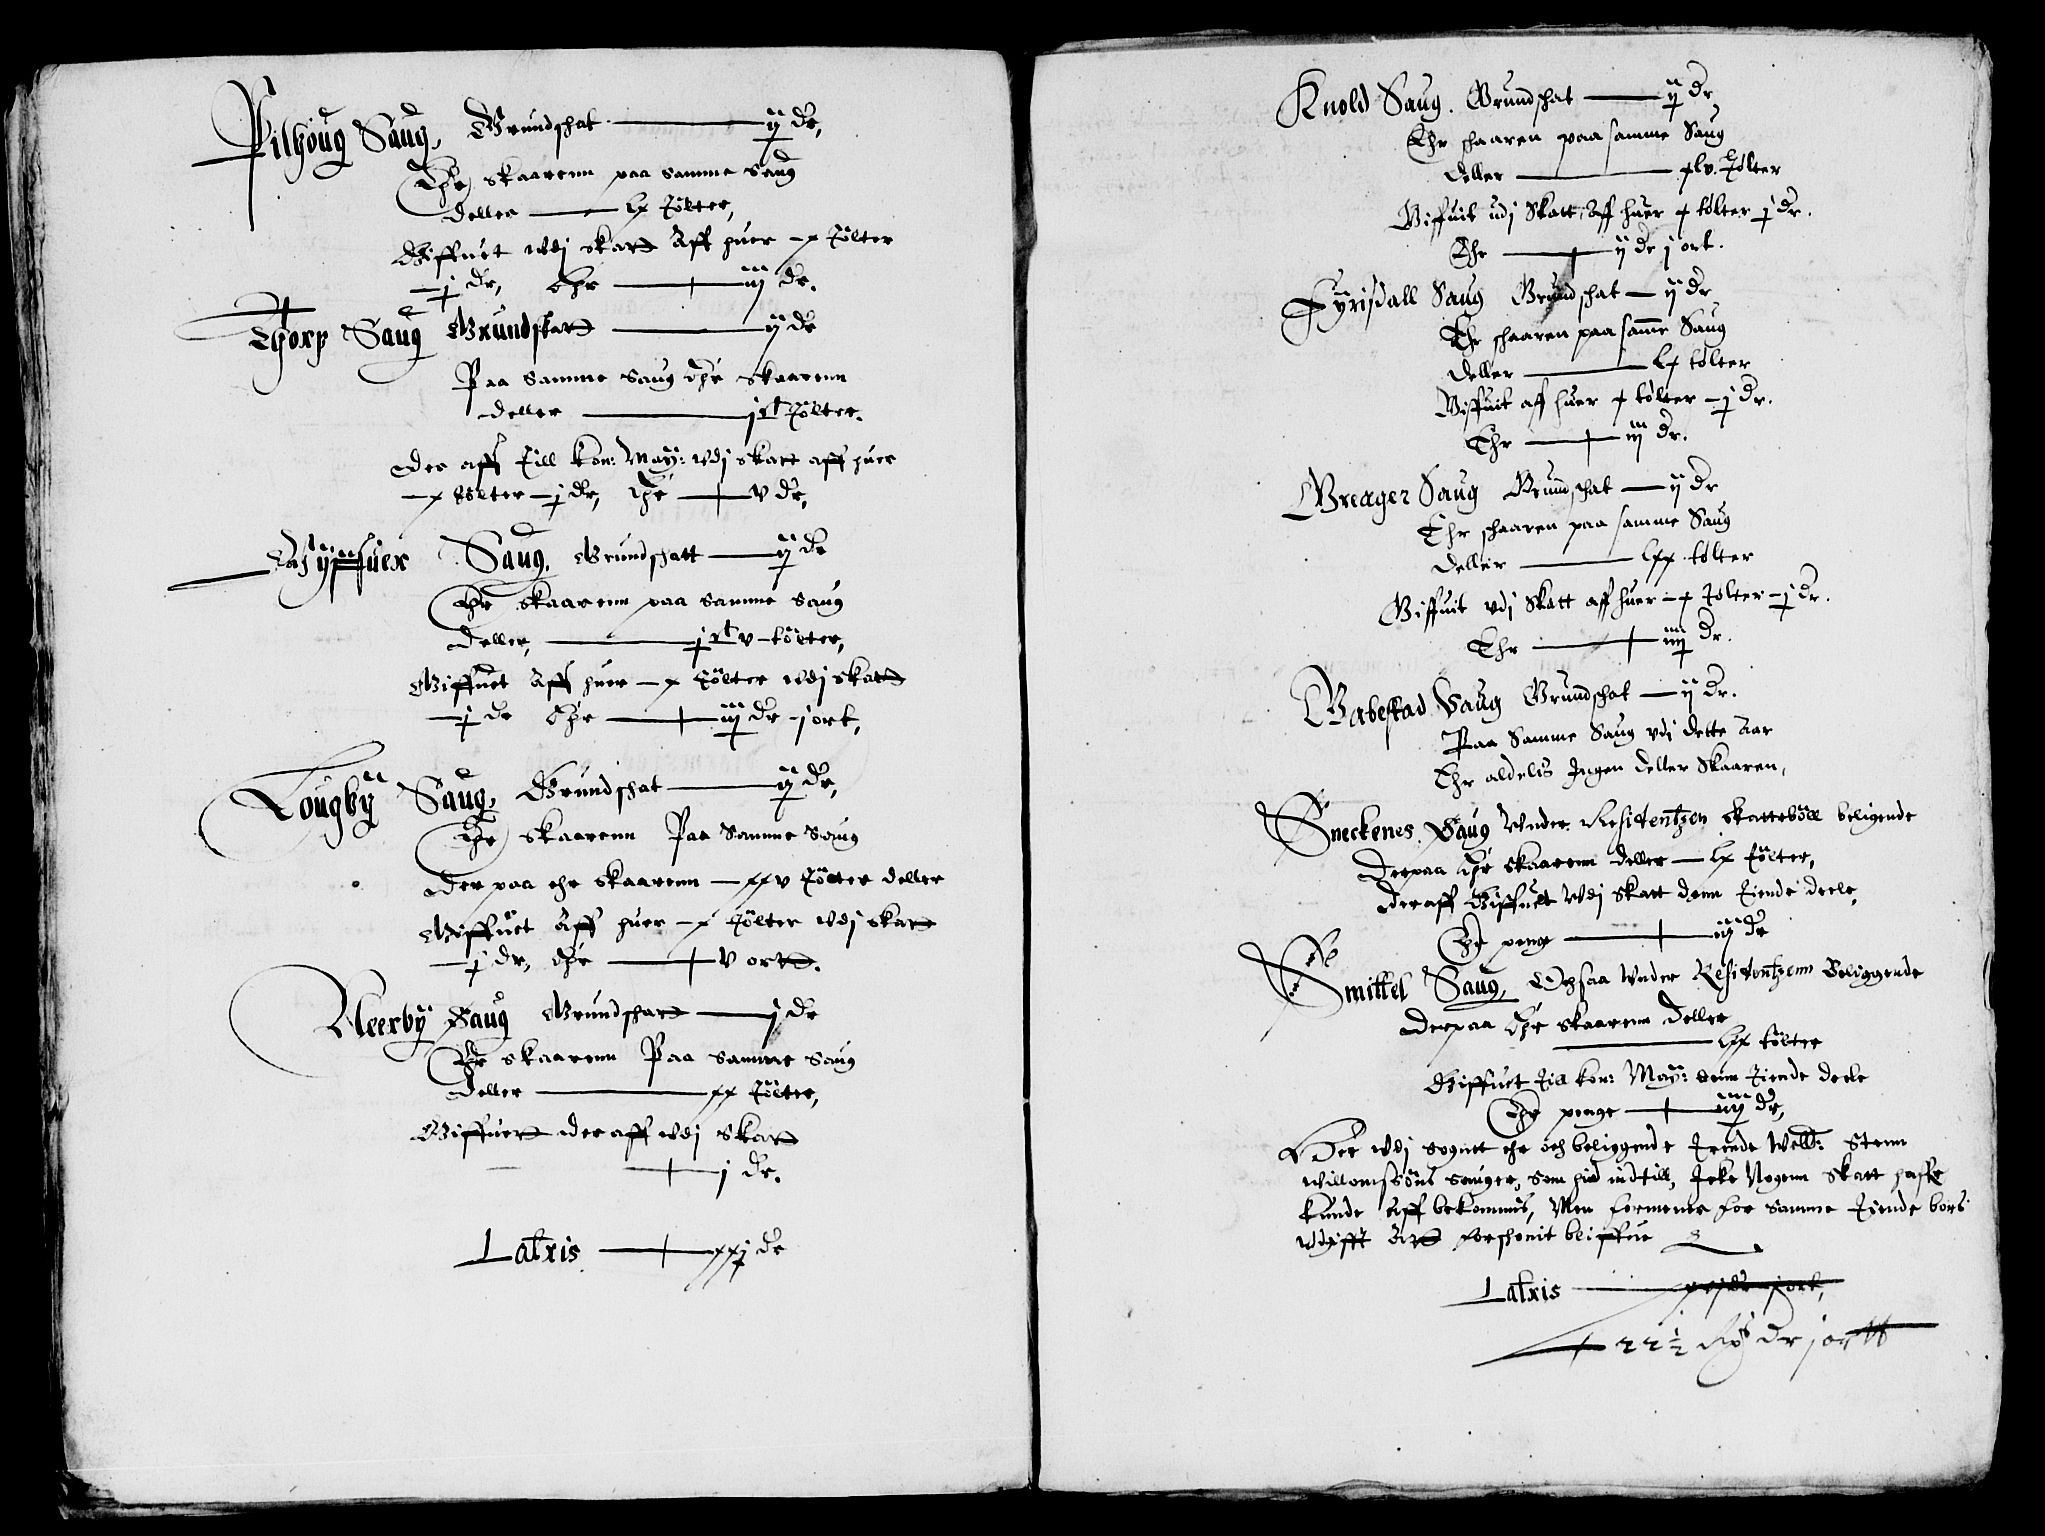 Pilhoug Saug, Grundschat ij dr,
Ehr skaarenn paa samme Saug
deller Lx Tölter,
Giffuet wdj skatt Aff huer x Tölter
j dr, Ehr iij dr.
Thorp Saug Grundskatt ij dr
Paa samme saug Ehr skaarenn
deller jct Tölter.
Der aff Till kon: May: wdj skatt aff huer
x tölter j dr, Ehr v dr,
Saug, Grundschatt ij dr
Ehr skaarenn paa samme saug
deller, jct v tölter,
Giffuet Aff huer x Tölter wdj skatt
j dr Ehr iij dr j ort,
Lougby Saug, Grundschat ij dr,
Ehr skaarenn Paa Samme Saug
Der paa ehr skaarenn xxv Tölter deller
Giffuet Aff huer x Tölter wdj skatt
j dr, Ehr v ortt.
Neerby Saug Grundschatt j dr
Ehr skaarenn Paa samme saug
deller xx Tölter,
Giffuett der aff wdj skatt
j dr.
Latris xxj dr
Knold Saug. Grundschat ij dr,
Ehr schaaren paa samme Saug
deller xlv. Tölter
Giffuit udj Skatt, Aff huer x tölter j dr.
Ehr ij dr j ort.
Fyrisdall Saug Grundschat ij dr
Ehr schaaren paa samme Saug
deller Lx tölter
Giffuit aff huer x tölter j dr.
Ehr iij dr.
Greager Saug Grundschat ij dr
Ehr schaaren paa samme Saug
deller Lxx tölter
Giffuit vdj Skatt aff huer x Tölter j dr.
Ehr iiij dr.
Gabestad Saug Grundschat ij dr.
Paa Samme Saug vdi dette Aar
Ehr aldelis Ingen deller Skaaren,
Sneckenes Saug Vnder Residentzen skatteböll beligende
Derpaa Ehr skaarenn deller Lx Tölter,
Deraff Giffuet Wdj skatt denn Tiende deele,
Ehr penge iiij dr
Smittel Saug, Ochsaa Vnder Residentzenn Beliggende
Derpaa Ehr skaarenn Deller
Lxx tölter
Giffuet Till kon: May: denn Tiende deele
Ehr penge iiij dr,
Her wdj sognet ehr och beliggende Trende Welb: Stenn
Willomssöns sauger, som hid indtill, Icke Nogenn Skatt haffr
kunde Aff bekommis, Men formener for samme Tiende bors
forschonit bliffue
Latris
22½ Rix dr j ortt